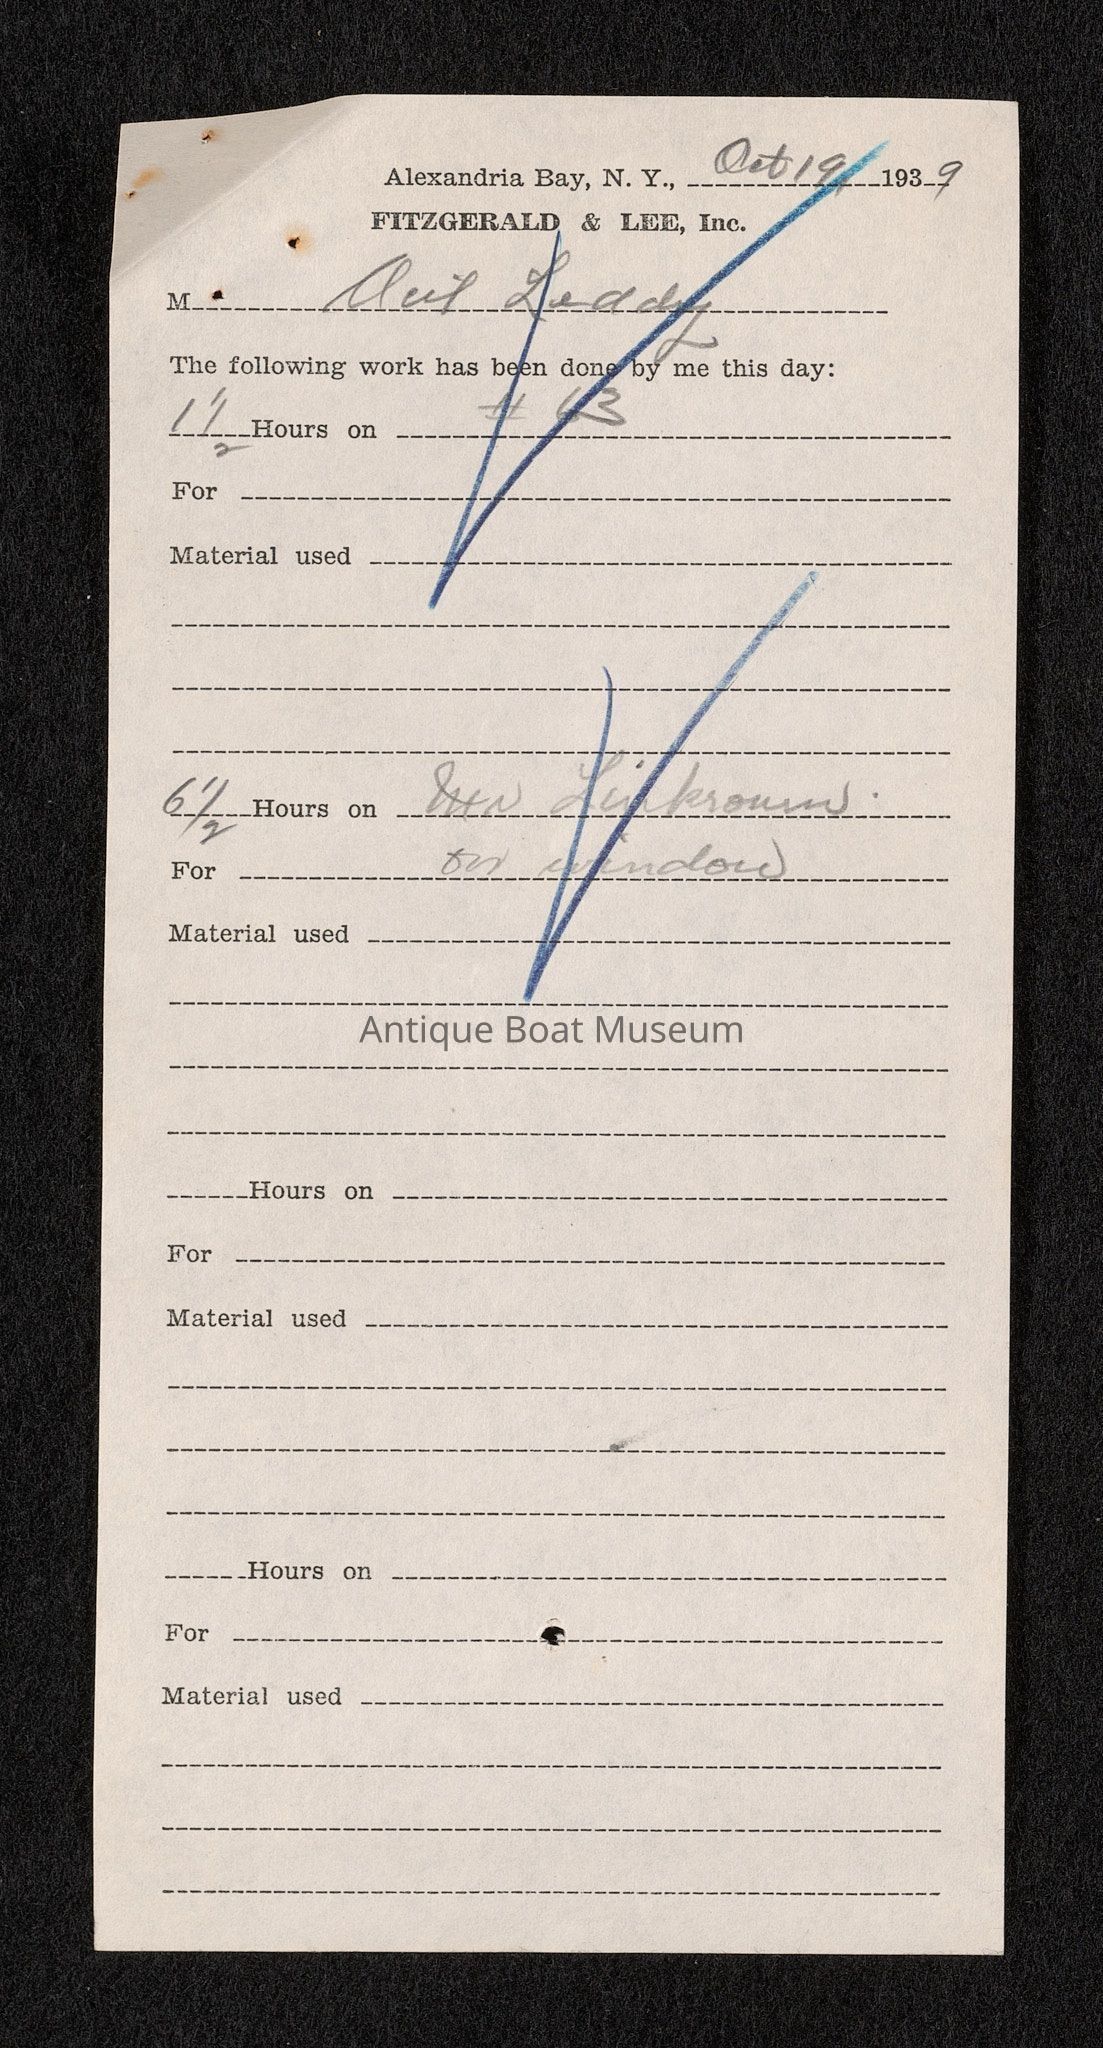 Alexandria Bay, N. Y., Oct 19, 1939
FITZGERALD & LEE, Inc.
M Leddy
The following work has been done by me this day:
1 1/2 Hours on # 63
For
Material used
6 1/2 Hours on Mr
For on window
Material used
Antique Boat Museum
Hours on
For
Material used
Hours on
For
Material used